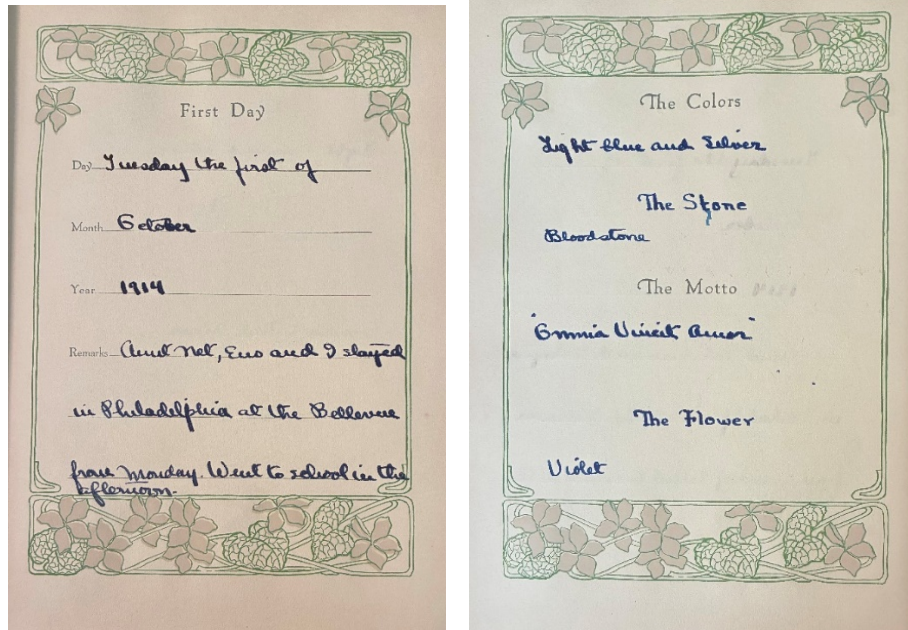 First Day
Day Tuesday the first of
Month October
Year 1914
Remarks Aunt Net, Eno and I stayed
in Philadelphia at the Bellevue
from Monday. Went to school in the
afternoon.
The Colors
Light blue and Silver
The Stone
Bloodstone
The Motto
"Omnia Vincit Amor"
The Flower
Violet